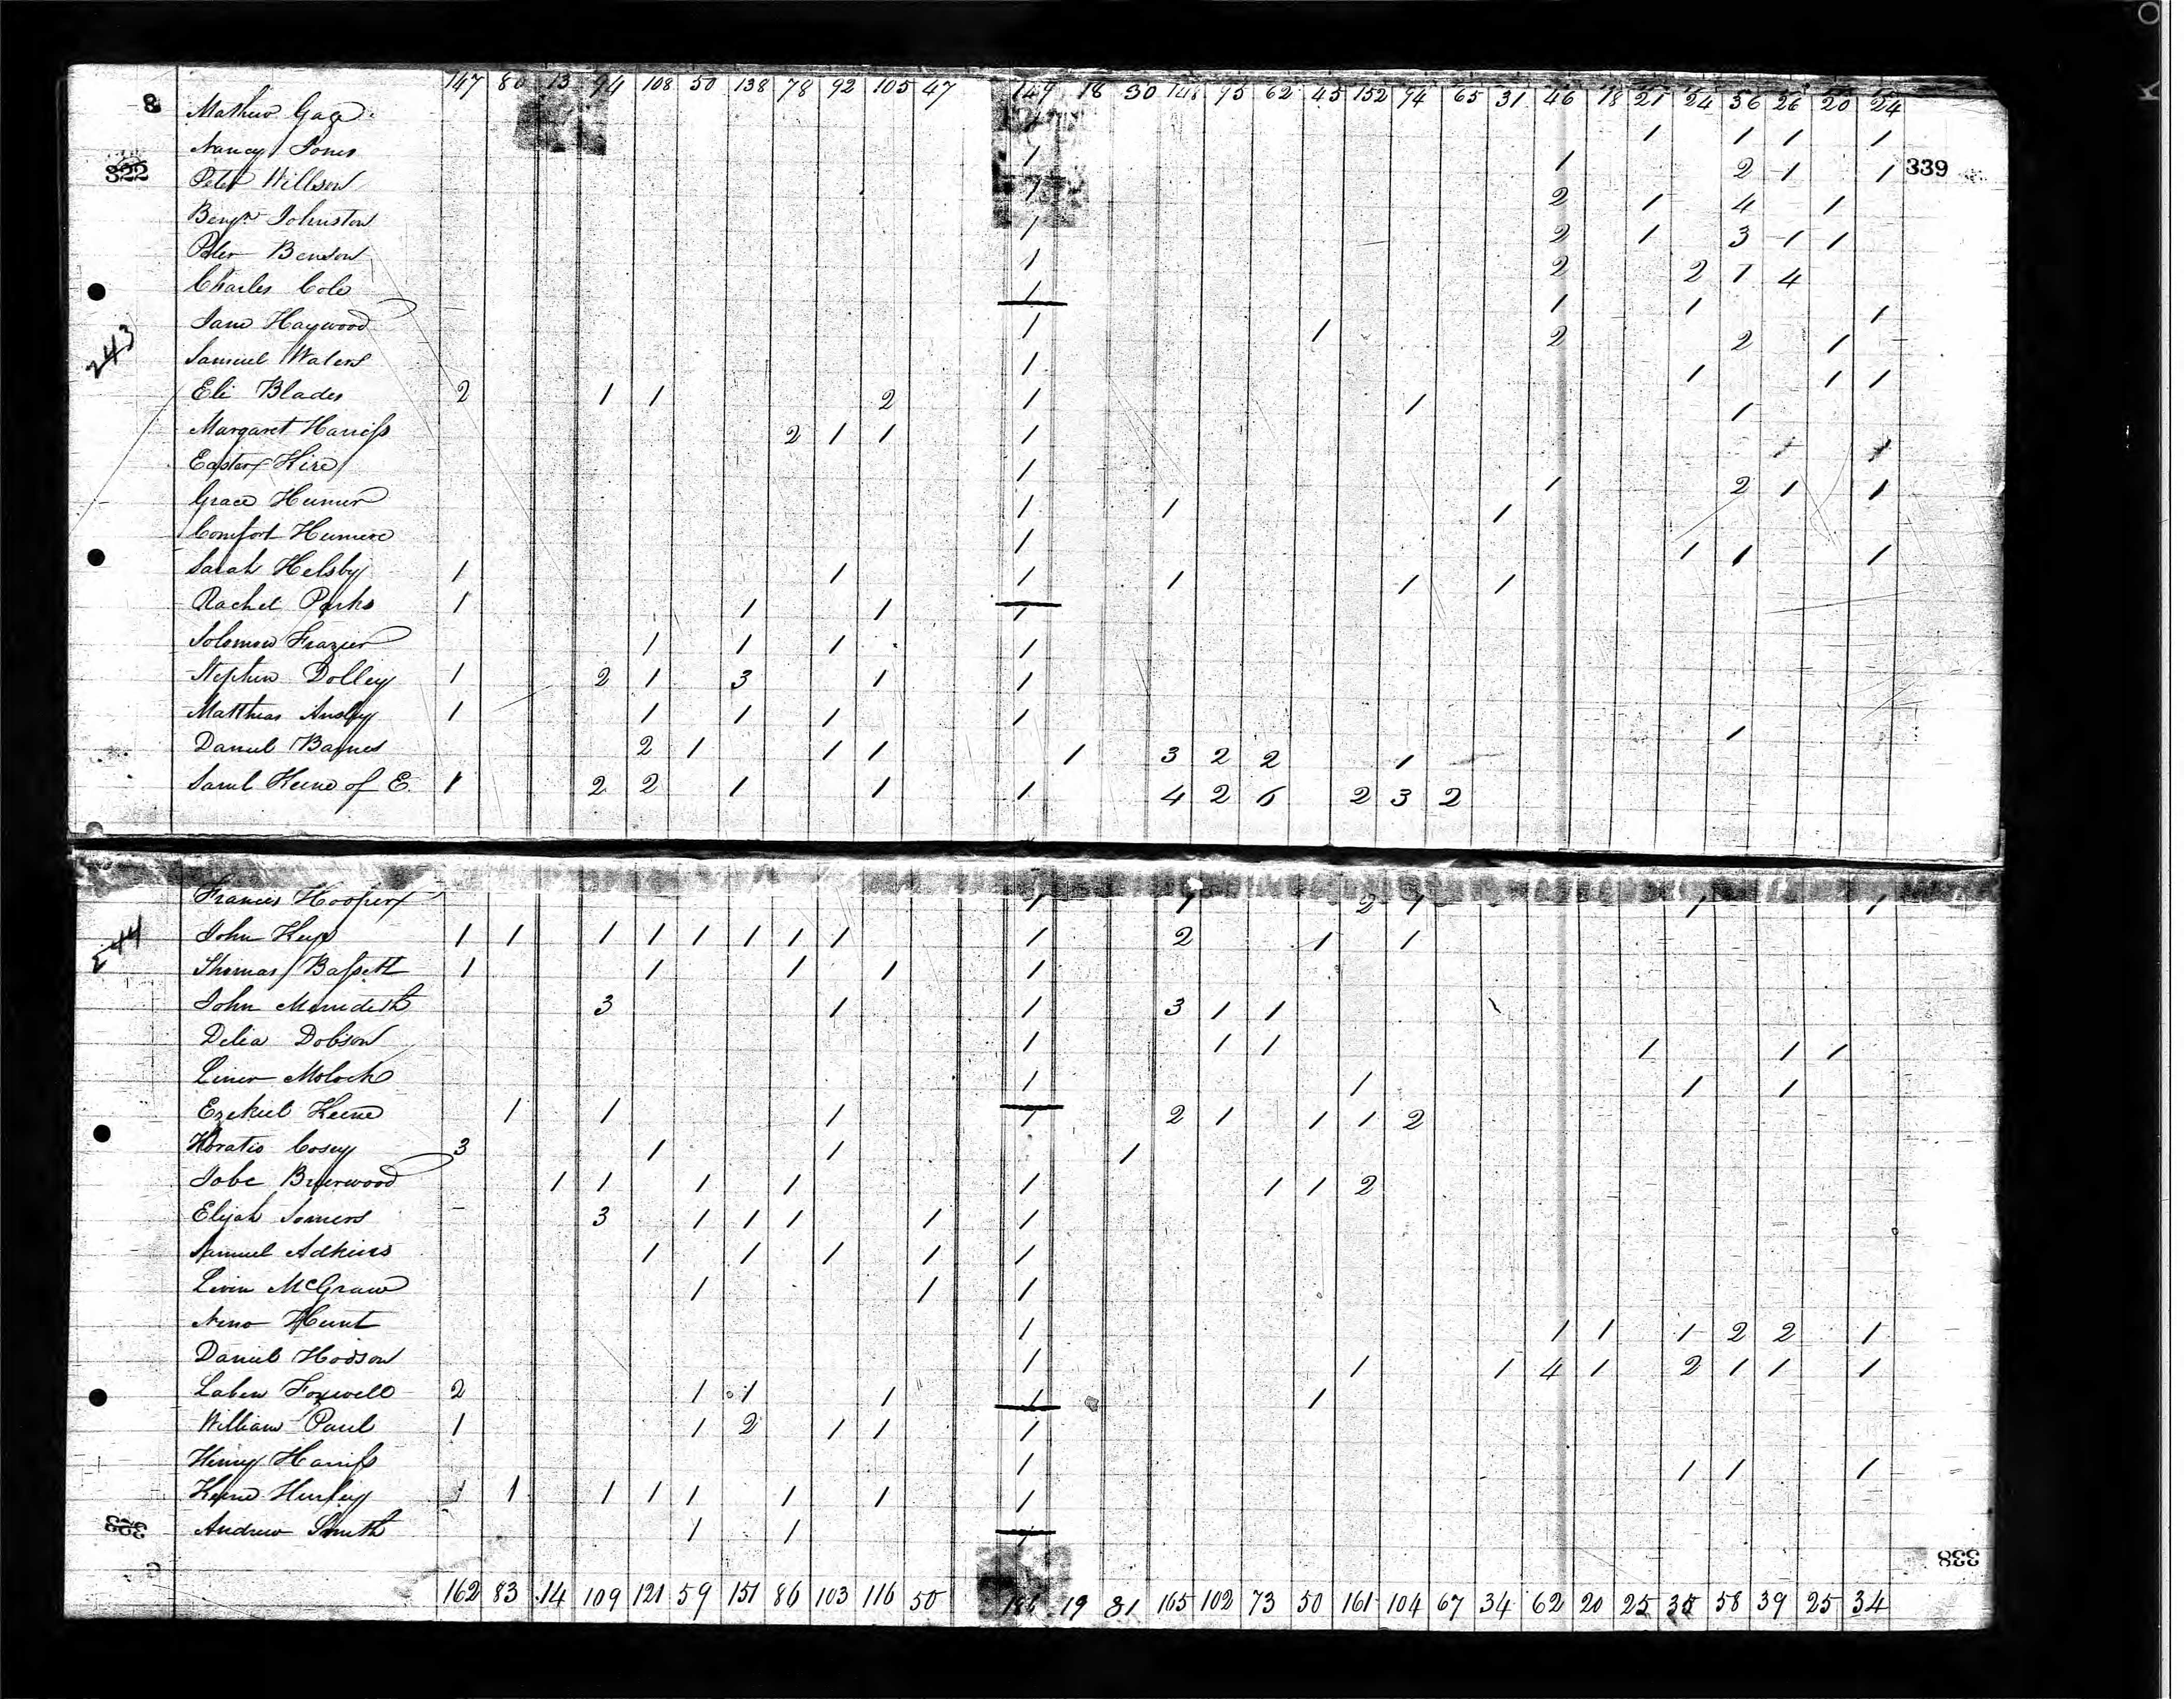 147 80 13 94 108 50 138 78 92 105 47 149 18 30 148 95 62 45 152 94 65 31 46 18 21 24 36 26 20 24
8 Mathew 1 1 1 1
Nancy Jones 1 1 2 1 1 339
322 Peter Willson 1 2 1 4 1
Benjn Johnston 1 2 1 3 1 1
Peter Benson 1 2 2 1 4
Charles Cole 1 1 1 1
Jane Haywood 1 1 2 2 1
243 Samuel Waters 1 1 1 1
Eli Blades 2 1 1 2 1 1 1
Margaret Harriss 2 1 1 1 1 1
Easter Hire 1 1 2 1 1
Grace 1 1 1
Comfort 1 1 1 1
Sarah Helsby 1 1 1 1 1 1
Rachel Parks 1 1 1 1
Solomon Frazier 1 1 1 1
Stephen Dolley 1 2 1 3 1 1
Matthias Ansley 1 1 1 1 1 1
Daniel Barnes 2 1 1 1 1 3 2 2 1
Saml Keene of E. 1 2 2 1 1 1 4 2 6 2 3 2
Francis Hooper 1 1 2 1 1 1
244 John 1 1 1 1 1 1 1 1 1 2 1 1
Thomas Bassett 1 1 1 1 1
John Meridith 3 1 1 3 1 1
Delia Dobson 1 1 1 1 1 1
Liner Molock 1 1 1 1
Ezekiel Keene 1 1 1 1 2 1 1 1 2
Horatio Cosey 3 1 1 1
Jobe Brierwood 1 1 1 1 1 1 1 2
Elijah Somers 3 1 1 1 1 1
Samuel Adkins 1 1 1 1 1
Levin McGraw 1 1 1
Nero Hunt 1 1 1 1 2 2 1
Daniel Hodson 1 1 1 4 1 2 1 1 1
Laben Foxwell 2 1 1 1 1 1
William Paul 1 1 2 1 1 1
Henry Harriss 1 1 1 1
Keene Hurley 1 1 1 1 1 1 1 1
323 Andrew Smith 1 1 1
338
162 83 14 109 121 59 151 86 103 116 50 186 19 31 165 102 73 50 161 104 67 34 62 20 25 35 58 39 25 34